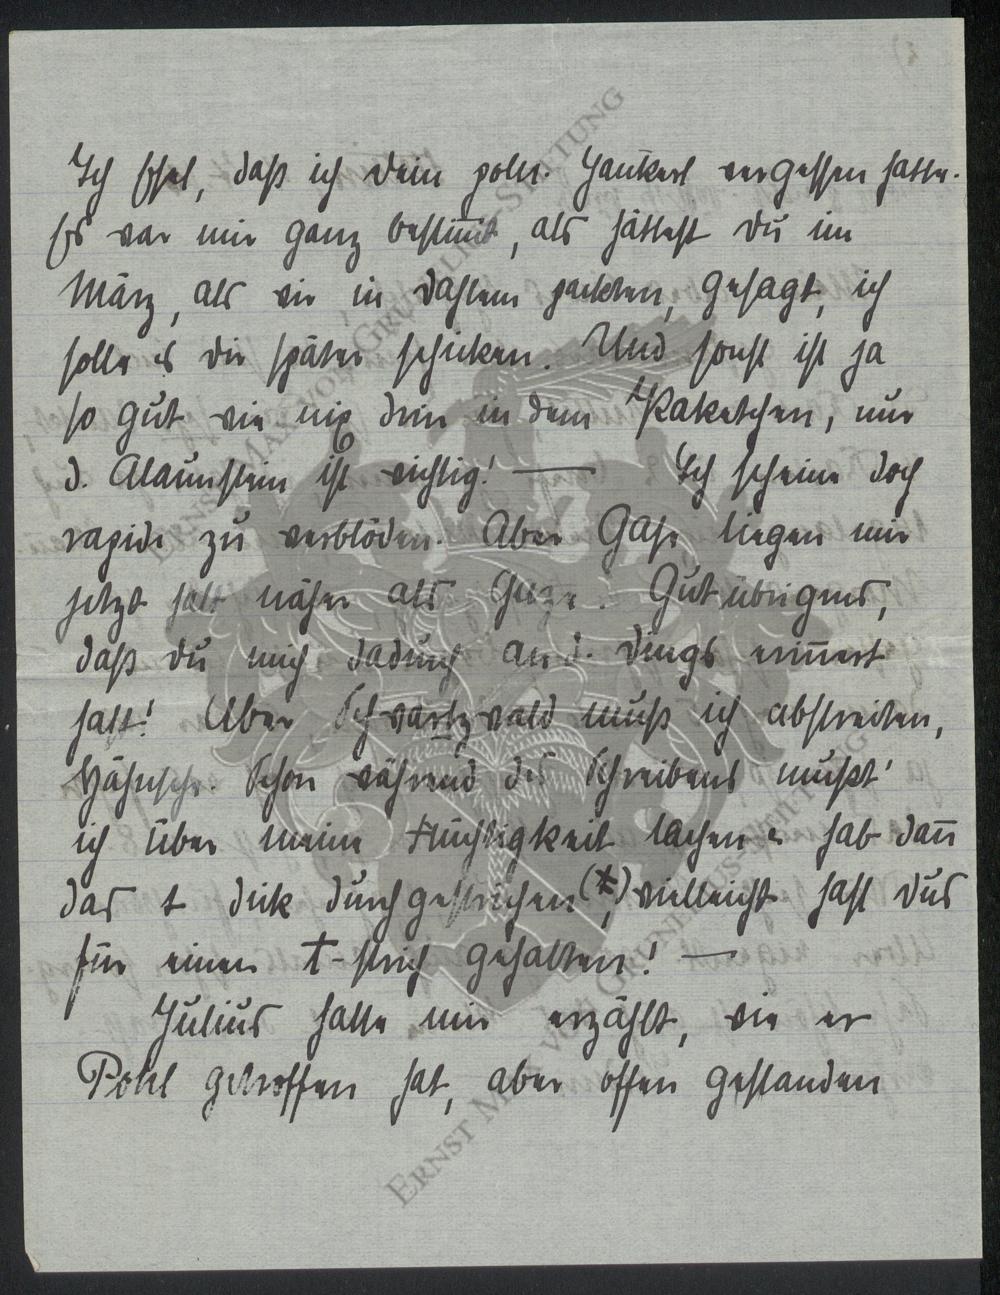 Ich Esel, daß ich dein poln. Jankerl vergessen hatte.
Es war mir ganz bestimmt, als hättest du im
März, als wir in Dahlem packten, gesagt, ich
solle es dir später schicken. Und sonst ist ja
so gut wie nix drin in dem Paketchen, nur
d. Alaunstein ist wichtig! — Ich scheine doch
rapide zu verblöden. Aber Gase liegen mir
jetzt halt näher als Gaze. Gut übrigens,
daß du mich dadurch an d. Dings erinnert
hast! Aber Schwartzwald muß ich abstreiten,
Hähnsche. Schon während des Schreibens mußt'
ich über meine Tüchtigkeit lachen u hab dann
das t dick durchgestrichen (t,) vielleicht hast Dus
für einen T-strich gehalten! —
Julius hatte mir erzählt, wie er
Pohl getroffen hat, aber offen gestanden
ERNST MAX VON GRUNELIUS-STIFTUNG
ERNST MAX VON GRUNELIUS-STIFTUNG